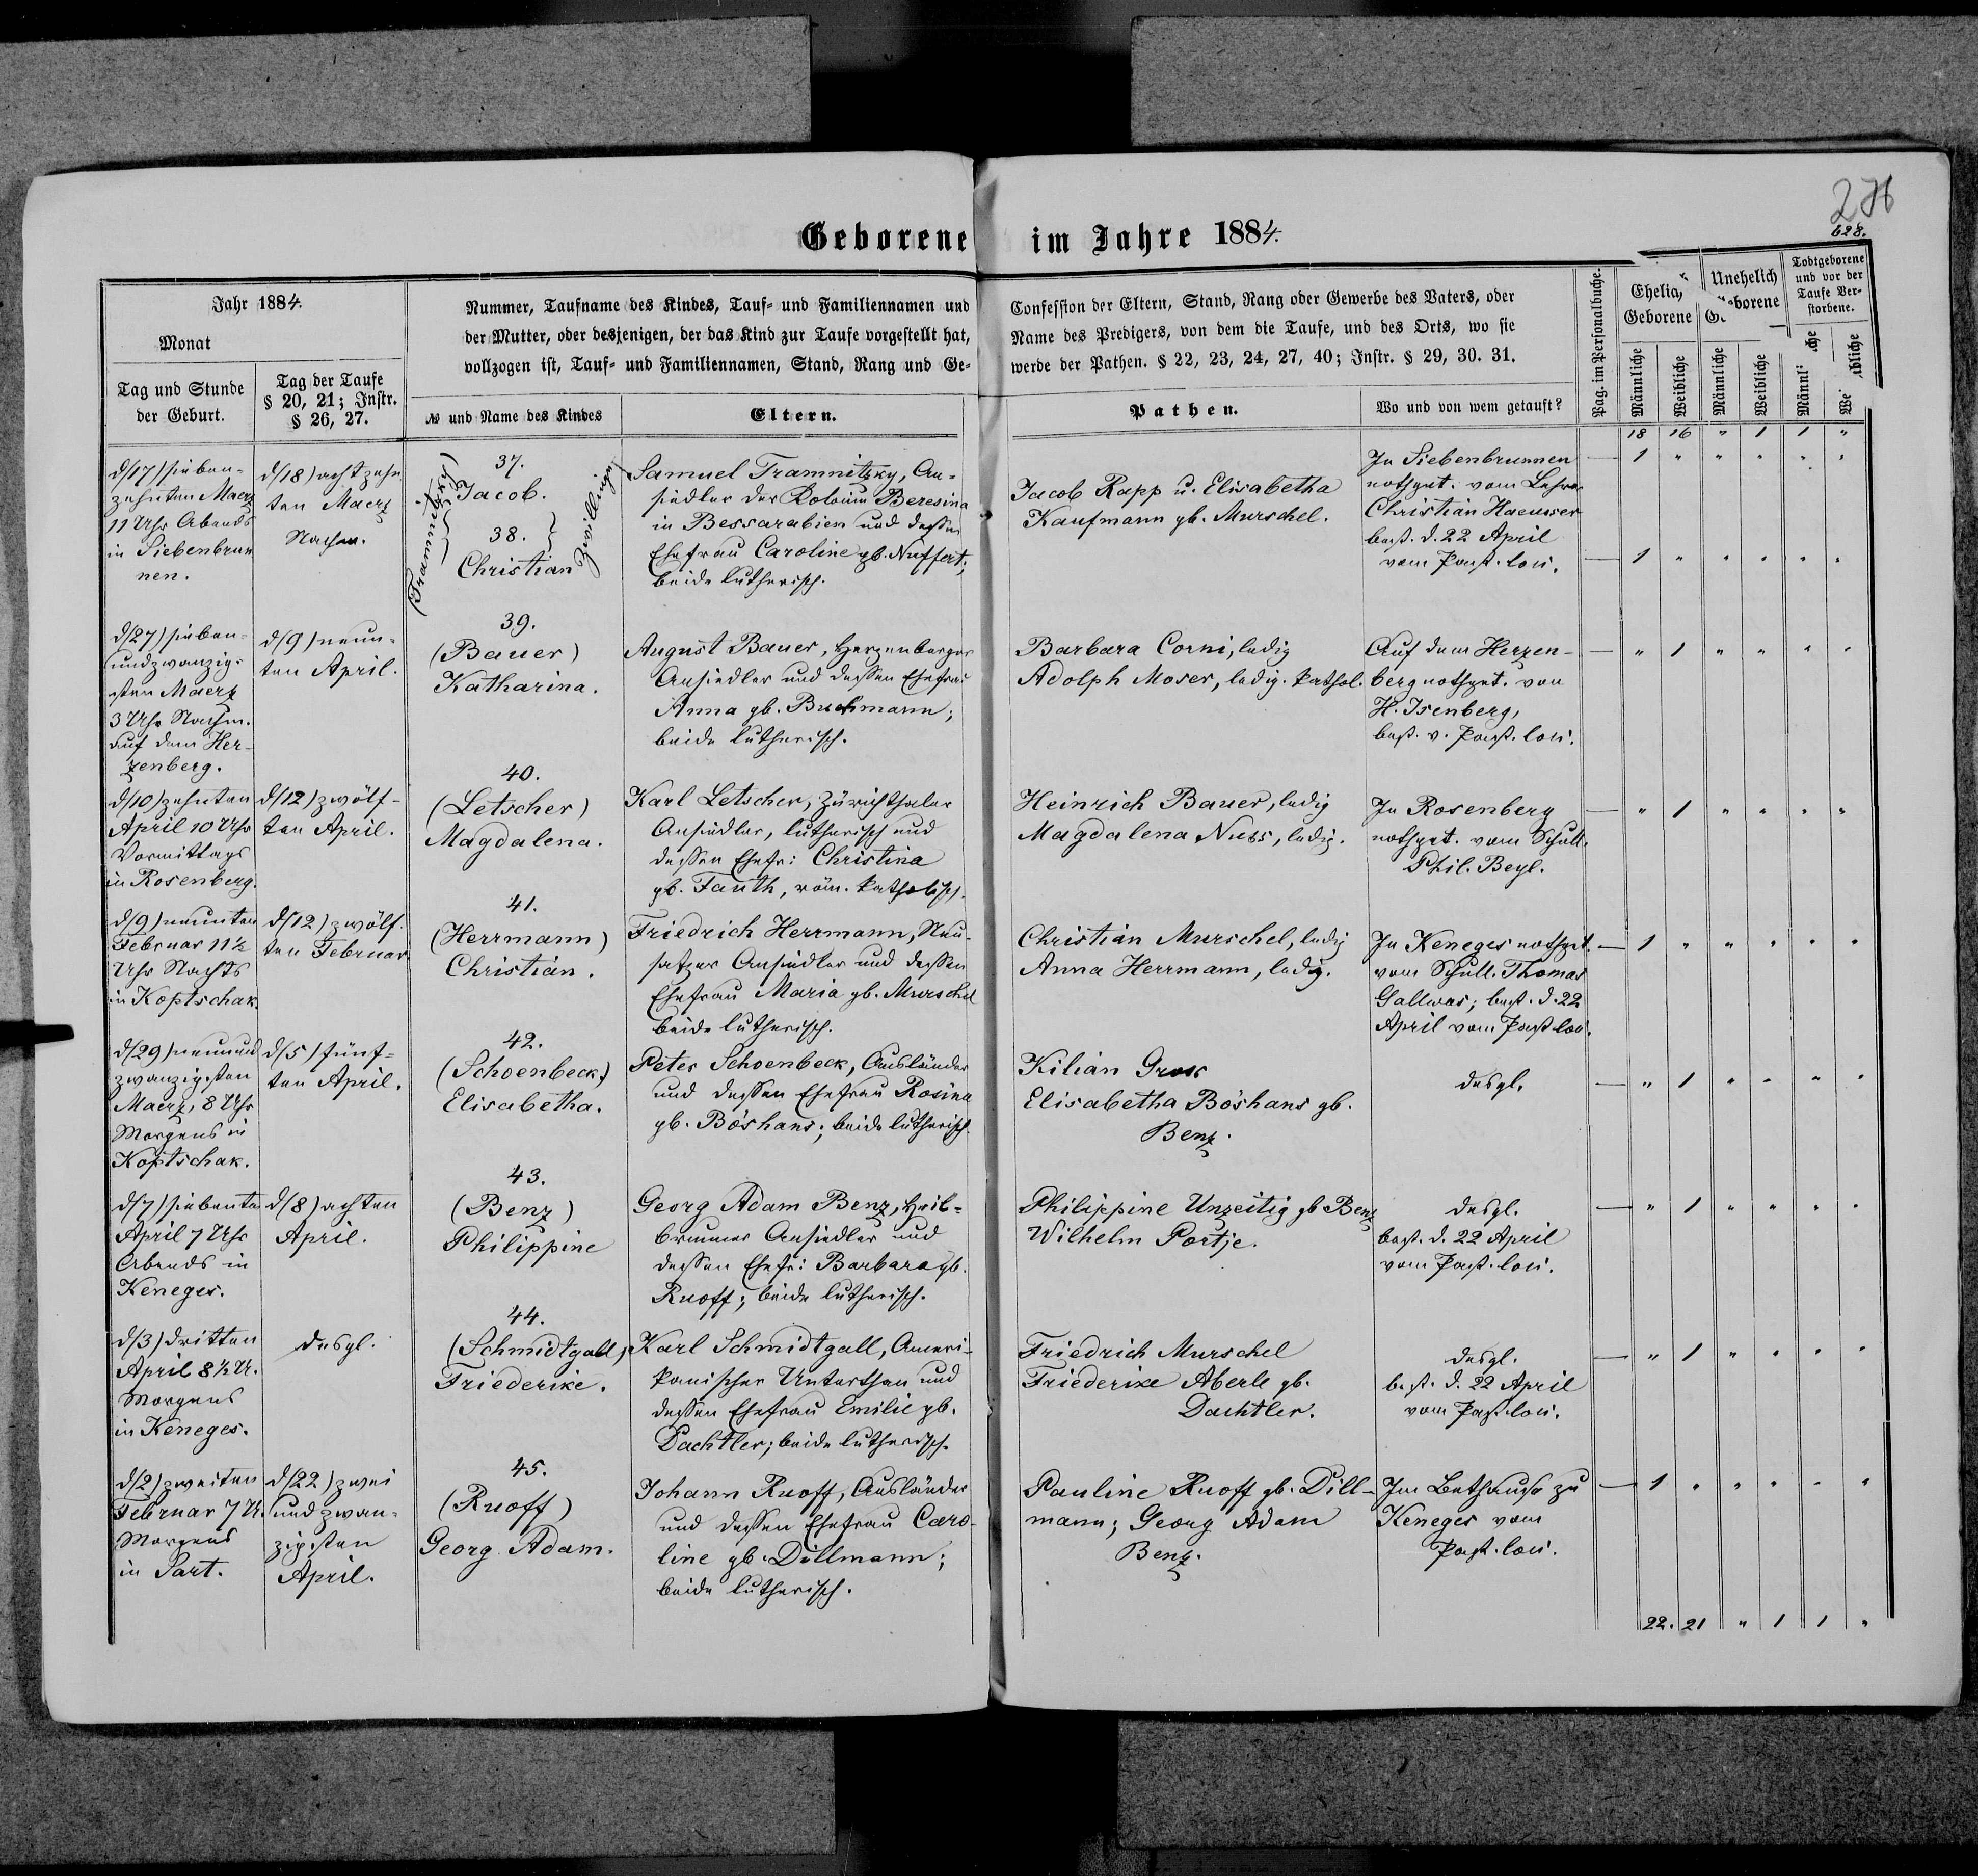 276
628.
Geborene im Jahre 1884.
Jahr 1884.
Monat
Tag und Stunde
der Geburt.
Tag der Taufe
§ 20, 21; Instr.
§ 26, 27.
Nummer, Taufname des Kindes, Tauf- und Familiennamen und
der Mutter, oder desjenigen, der das Kind zur Taufe vorgestellt hat,
vollzogen ist, Tauf- und Familiennamen, Stand, Rang und Ge-
№ und Name des Kindes
Eltern.
Confession der Eltern, Stand, Rang oder Gewerbe des Vaters, oder
Name des Predigers, von dem die Taufe, und des Orts, wo sie
werde der Pathen. § 22, 23, 24, 27, 40; Instr. § 29, 30. 31.
Pathen.
Wo und von wem getauft?
Pag. im Personalbuche.
Ehelich
Geborene
Unehelich
Geborene
Todtgeborene
und vor der
Taufe Ver-
storbene.
Männliche
Weibliche
Männliche
Weibliche
18 16 " 1 1 "
d/17) sieben-
zehnten Maerz
11 Uhr Abends
in Siebenbrun
nen.
d/18) achtzehn
ten Maerz
Nachm.
(Tramnitzky)
37.
Jacob.
38.
Christian
Zwillinge
Samuel Tramnitzky, An-
siedler der Kolonie Beresina
in Bessarabien und dessen
Ehefrau Caroline gb. Nuffert;
beide lutherisch.
Jacob Rapp u. Elisabetha
Kaufmann gb. Murschel.
In Siebenbrunnen
nothget. vom Lehrer
Christian Haeuser
best. d. 22 April
vom Past. loci.
1 " " " " "
1 " " " " "
d/27) sieben-
undzwanzig-
sten Maerz
3 Uhr Nachm.
auf dem Her-
zenberg.
d/9) neun-
ten April.
39.
(Bauer)
Katharina.
August Bauer, Herzenberger
Ansiedler und dessen Ehefrau
Anna gb. Buchmann;
beide lutherisch.
Barbara Corni, ledig
Adolph Moser, ledig. kathol.
Auf dem Herzen-
berg nothget. von
H. Isenberg,
best. v. Past. loci.
" 1 " " " "
d/10) zehnten
April 10 Uhr
Vormittags
in Rosenberg.
d/12) zwölf-
ten April.
40.
(Letscher)
Magdalena.
Karl Letscher, Zürichthaler
Ansiedler, lutherisch und
dessen Ehefr: Christina
gb. Fauth, röm. katholisch.
Heinrich Bauer, ledig
Magdalena Nuss, ledig.
In Rosenberg
nothget. vom Schull.
Phil. Beyl.
" 1 " " " "
d/9) neunten
Februar 11½
Uhr Nachts
in Koptschak.
d/12) zwölf-
ten Februar
41.
(Herrmann)
Christian.
Friedrich Herrmann, Neu-
satzer Ansiedler und dessen
Ehefrau Maria gb. Murschel
beide lutherisch.
Christian Murschel, ledig
Anna Herrmann, ledig.
In Keneges nothget.
vom Schull. Thomas
Gallwas; best. d. 22
April vom Past. loci.
1 " " " " "
d/29) neunund
zwanzigsten
Maerz, 8 Uhr
Morgens in
Koptschak.
d/5) fünf-
ten April.
42.
(Schoenbeck)
Elisabetha.
Peter Schoenbeck, Ausländer
und dessen Ehefrau Rosina
gb. Böshans; beide lutherisch.
Kilian Gross
Elisabetha Böshans gb.
Benz.
desgl.
" 1 " " " "
d/7) siebenten
April 7 Uhr
Abends in
Keneges.
d/8) achten
April.
43.
(Benz)
Philippine
Georg Adam Benz, Heil-
brunner Ansiedler und
dessen Ehefr: Barbara gb.
Ruoff; beide lutherisch.
Philippine Unzeitig gb Benz
Wilhelm Portje.
desgl.
best. d. 22 April
vom Past. loci.
" 1 " " " "
d/3) dritten
April 8½ U.
Morgens
in Keneges.
desgl.
44.
(Schmidtgall)
Friederike.
Karl Schmidtgall, Ameri-
kanischer Unterthan und
dessen Ehefrau Emilie gb.
Dachtler; beide lutherisch.
Friedrich Murschel
Friederike Aberle gb.
Dachtler.
desgl.
best. d. 22 April
vom Past. loci.
" 1 " " " "
d/2) zweiten
Februar 7 U.
Morgens
in Sart.
d/22) zwei
und zwan-
zigsten
April.
45.
(Ruoff)
Georg Adam.
Johann Ruoff, Ausländer
und dessen Ehefrau Caro-
line gb. Dillmann;
beide lutherisch.
Pauline Ruoff gb. Dill-
mann; Georg Adam
Benz.
Im Bethause zu
Keneges vom
Past. loci.
1 " " " " "
22. 21 " 1 1 "